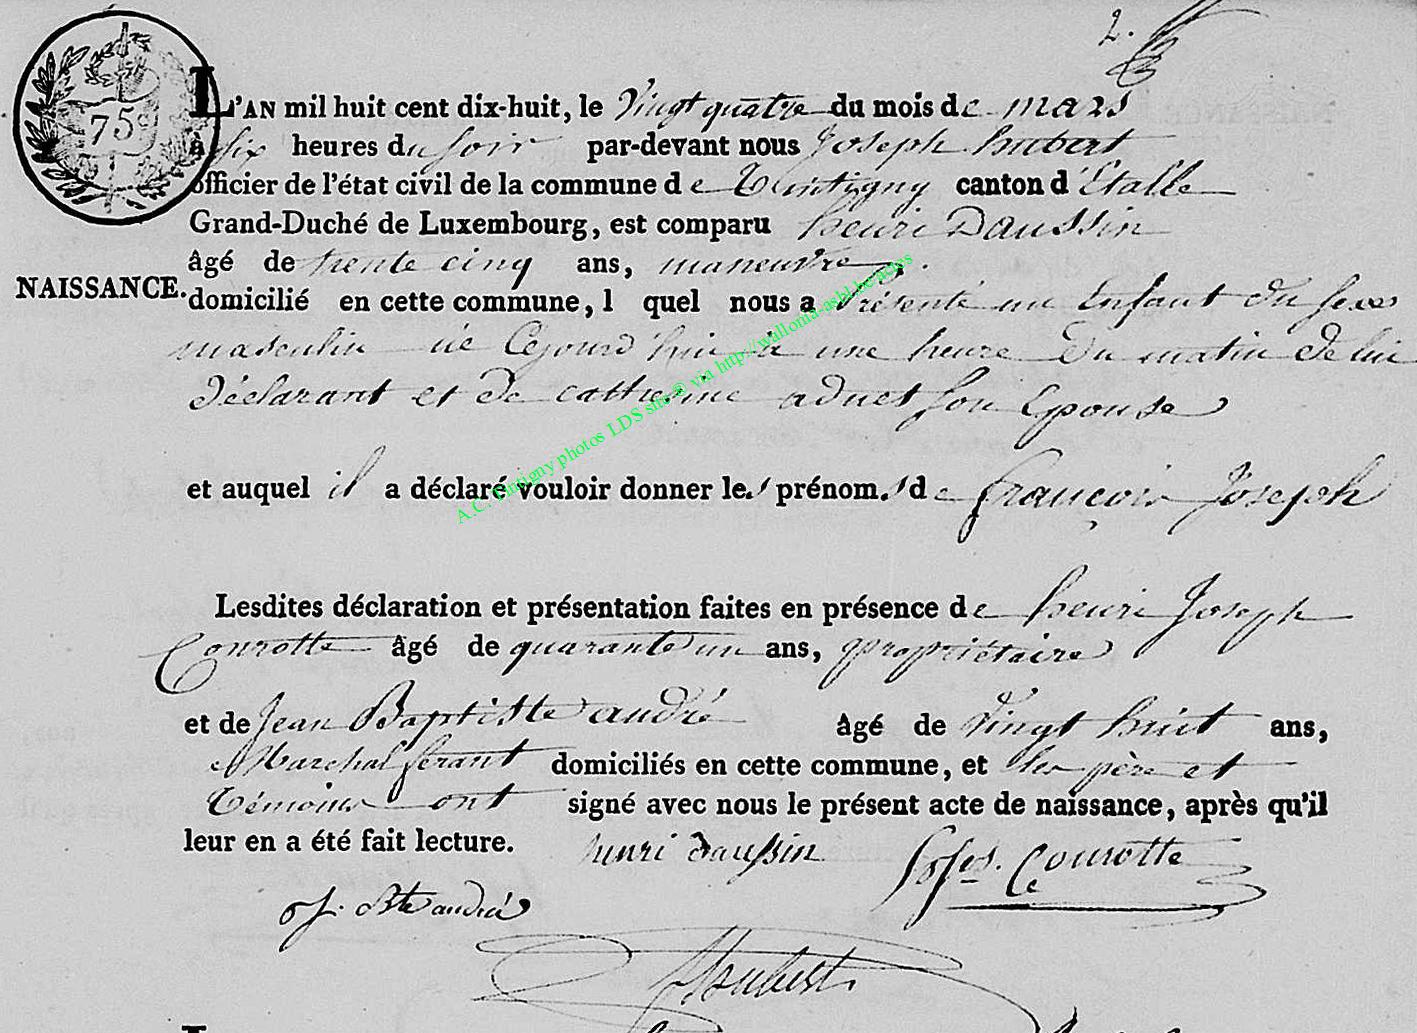 2.
75c
L'AN mil huit cent dix-huit, le Vingt quatre du mois de mars
à six heures du soir par-devant nous Joseph hubert
officier de l'état civil de la commune de Tintigny canton d'Etalle
Grand-Duché de Luxembourg, est comparu henri Daussin
âgé de trente cinq ans, maneuvre
NAISSANCE.
domicilié en cette commune, l quel nous a Présenté un Enfant du sexe
masculin né Cejourd'hui à une heure Du matin De lui
Déclarant et De catherine aduet son Epouse
et auquel il a déclaré vouloir donner les prénoms de françois Joseph
Lesdites déclaration et présentation faites en présence de henri Joseph
Courotte âgé de quarante un ans, propriétaire
et de Jean Baptiste andré âgé de Vingt huit ans,
Marchal ferant domiciliés en cette commune, et les père et
Témoins ont signé avec nous le présent acte de naissance, après qu'il
leur en a été fait lecture. henri daussin Courotte
J. Bte andré
Hubert
A.C. Tintigny photos LDS site© via http://walloma-asbl.be/actes